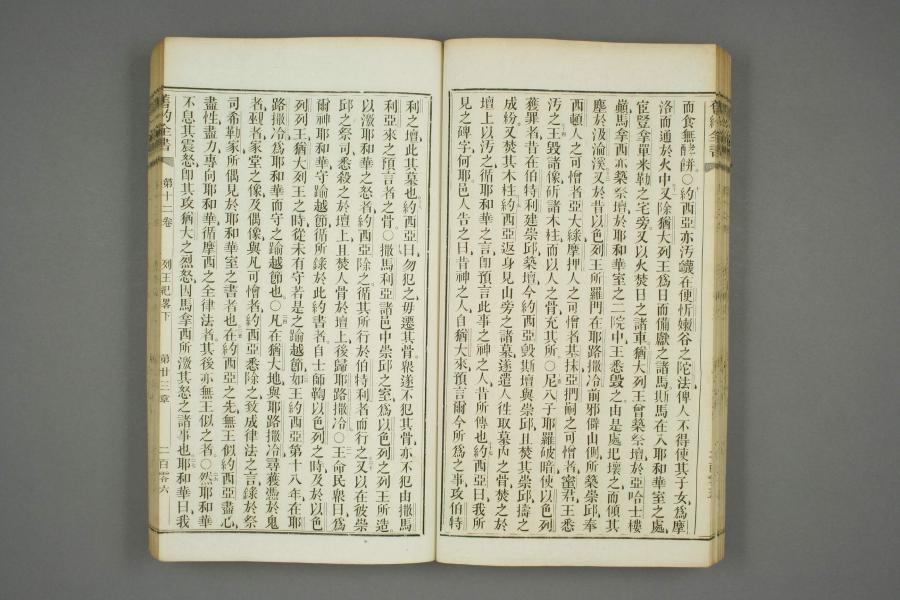 而食無酵餅○約西亞亦汚鐵在便忻嫩谷之陀法俾人不得使其子女爲摩
洛而通於火中又除猶大列王爲日而備獻之諸馬斯馬在入耶和華室之處
宦豎拿單米勒之宅旁又以火焚日之諸車猶大列王曾築祭壇於亞哈士樓
蘭馬拿西亦築祭壇於耶和華室之二院中王悉毀之由是處圯壞之而傾其
塵於汲淪溪又於昔以色列王所羅門在耶路撒冷前邪僻山側所築崇邱奉
西頓人之可憎者亞大綠摩押人之可憎者基抹亞捫嗣之可憎者蜜君王悉
汚之王毀諸像斫諸木柱而以人之骨充其所○尼八子耶羅破暗使以色列
獲罪者昔在伯特利建崇邱築壇今約西亞毀斯壇與崇邱且焚其崇邱擣之
成紛又焚其木柱約西亞返身見山旁之諸墓遂遣人徃取墓內之骨焚之於
壇上以汚之循耶和華之言卽預言此事之神之人昔所傳也約西亞曰我所
見之碑字何耶邑人告之曰昔神之人自猶大來預言爾今所爲之事攻伯特
利之壇此其墓也約西亞曰勿犯之毋遷其骨衆遂不犯其骨亦不犯由撒馬
利亞來之預言者之骨○撒馬利亞諸邑中崇邱之室爲以色列之列王所造
以激耶和華之怒者約西亞除之循其所行於伯特利者而行之又以在彼崇
邱之祭司悉殺之於壇上且焚人骨於壇上後歸耶路撒冷○王命民衆曰爲
爾神耶和華守踰越節循所錄於此約書者自士師鞫以色列之時及於以色
列列王猶大列王之時從未有守若是之踰越節如王約西亞第十八年在耶
路撒冷爲耶和華而守之踰越節也○凡在猶大地與耶路撒冷尋獲憑於鬼
者巫者家堂之像及偶像與凡可憎者約西亞悉除之致成律法之言錄於祭
司希勒家所偶見於耶和華室之書者也在約西亞之先無王似約西亞盡心
盡性盡力專向耶和華循摩西之全律法者其後亦無王似之者○然耶和華
不息其震怒卽其攻猶大之烈怒因馬拿西所激其怒之諸事也耶和華曰我
舊約全書 第十二卷 列王紀畧下 第廿三章 一百零六